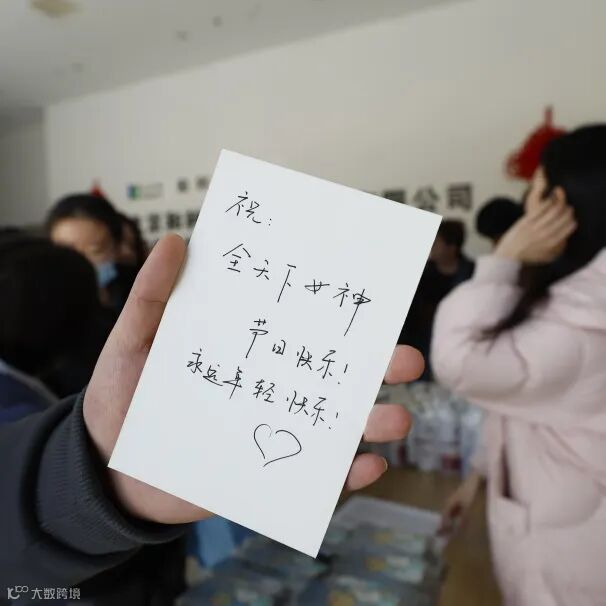 祝：
全天下女神
节日快乐！
永远年轻快乐！
限公司
大数跨境